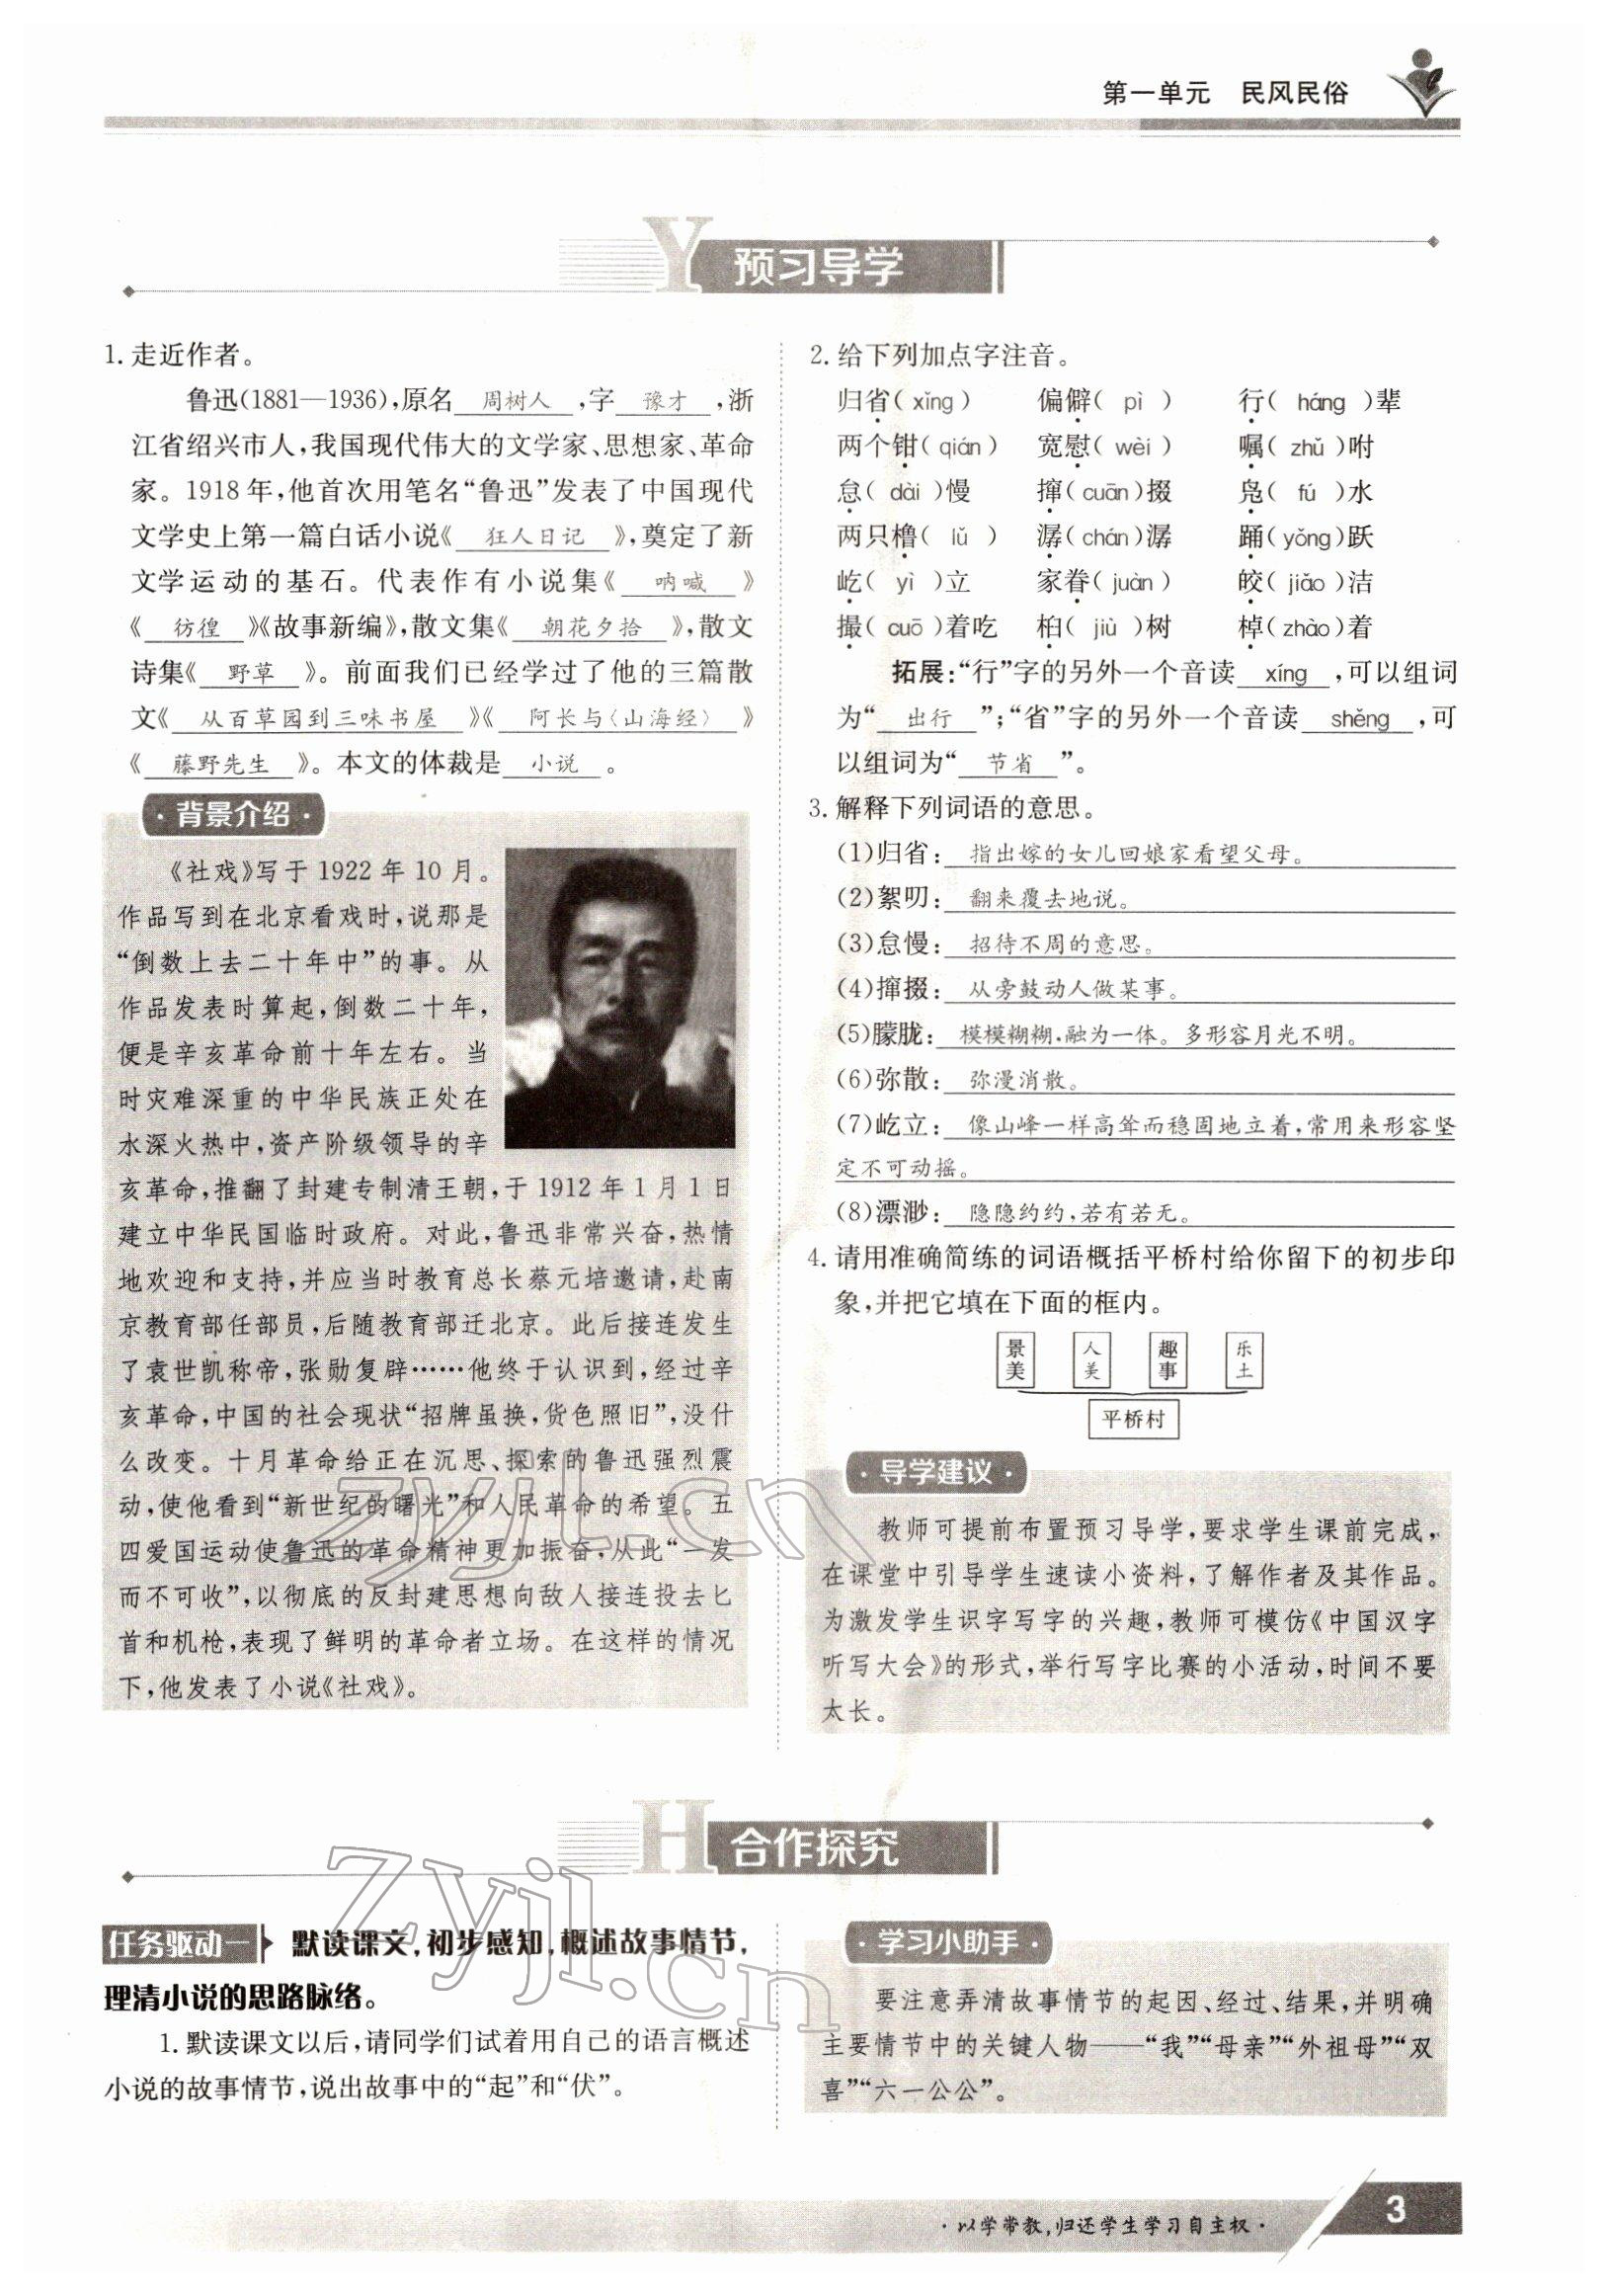 第一单元 民风民俗
Y 预习导学
1. 走近作者。
鲁迅(1881—1936),原名 周树人 ,字 豫才 ,浙
江省绍兴市人,我国现代伟大的文学家、思想家、革命
家。1918 年,他首次用笔名“鲁迅”发表了中国现代
文学史上第一篇白话小说《 狂人日记 》,奠定了新
文学运动的基石。代表作有小说集《 呐喊 》
《 彷徨 》《故事新编》,散文集《 朝花夕拾 》,散文
诗集《 野草 》。前面我们已经学过了他的三篇散
文《 从百草园到三味书屋 》《 阿长与〈山海经〉 》
《 藤野先生 》。本文的体裁是 小说 。
·背景介绍·
《社戏》写于 1922 年 10 月。
作品写到在北京看戏时,说那是
“倒数上去二十年中”的事。从
作品发表时算起,倒数二十年,
便是辛亥革命前十年左右。当
时灾难深重的中华民族正处在
水深火热中,资产阶级领导的辛
亥革命,推翻了封建专制清王朝,于 1912 年 1 月 1 日
建立中华民国临时政府。对此,鲁迅非常兴奋,热情
地欢迎和支持,并应当时教育总长蔡元培邀请,赴南
京教育部任部员,后随教育部迁北京。此后接连发生
了袁世凯称帝,张勋复辟……他终于认识到,经过辛
亥革命,中国的社会现状“招牌虽换,货色照旧”,没什
么改变。十月革命给正在沉思、探索的鲁迅强烈震
动,使他看到“新世纪的曙光”和人民革命的希望。五
四爱国运动使鲁迅的革命精神更加振奋,从此“一发
而不可收”,以彻底的反封建思想向敌人接连投去匕
首和机枪,表现了鲜明的革命者立场。在这样的情况
下,他发表了小说《社戏》。
2. 给下列加点字注音。
归省( xǐng ) 偏僻( pì ) 行( háng )辈
两个钳( qián ) 宽慰( wèi ) 嘱( zhǔ )咐
怠( dài )慢 撺( cuān )掇 凫( fú )水
两只橹( lǔ ) 潺( chán )潺 踊( yǒng )跃
屹( yì )立 家眷( juàn ) 皎( jiǎo )洁
撮( cuō )着吃 桕( jiù )树 棹( zhào )着
拓展:“行”字的另外一个音读 xíng ,可以组词
为“ 出行 ”;“省”字的另外一个音读 shěng ,可
以组词为“ 节省 ”。
3. 解释下列词语的意思。
(1)归省: 指出嫁的女儿回娘家看望父母。
(2)絮叨: 翻来覆去地说。
(3)怠慢: 招待不周的意思。
(4)撺掇: 从旁鼓动人做某事。
(5)朦胧: 模模糊糊,融为一体。多形容月光不明。
(6)弥散: 弥漫消散。
(7)屹立: 像山峰一样高耸而稳固地立着,常用来形容坚
定不可动摇。
(8)漂渺: 隐隐约约,若有若无。
4. 请用准确简练的词语概括平桥村给你留下的初步印
象,并把它填在下面的框内。
景美 人美 趣事 乐土
平桥村
·导学建议·
教师可提前布置预习导学,要求学生课前完成,
在课堂中引导学生速读小资料,了解作者及其作品。
为激发学生识字写字的兴趣,教师可模仿《中国汉字
听写大会》的形式,举行写字比赛的小活动,时间不要
太长。
zyjl.cn
H 合作探究
任务驱动一 默读课文,初步感知,概述故事情节,
理清小说的思路脉络。
1. 默读课文以后,请同学们试着用自己的语言概述
小说的故事情节,说出故事中的“起”和“伏”。
zyjl.cn
·学习小助手·
要注意弄清故事情节的起因、经过、结果,并明确
主要情节中的关键人物——“我”“母亲”“外祖母”“双
喜”“六一公公”。
·以学带教,归还学生学习自主权·
3